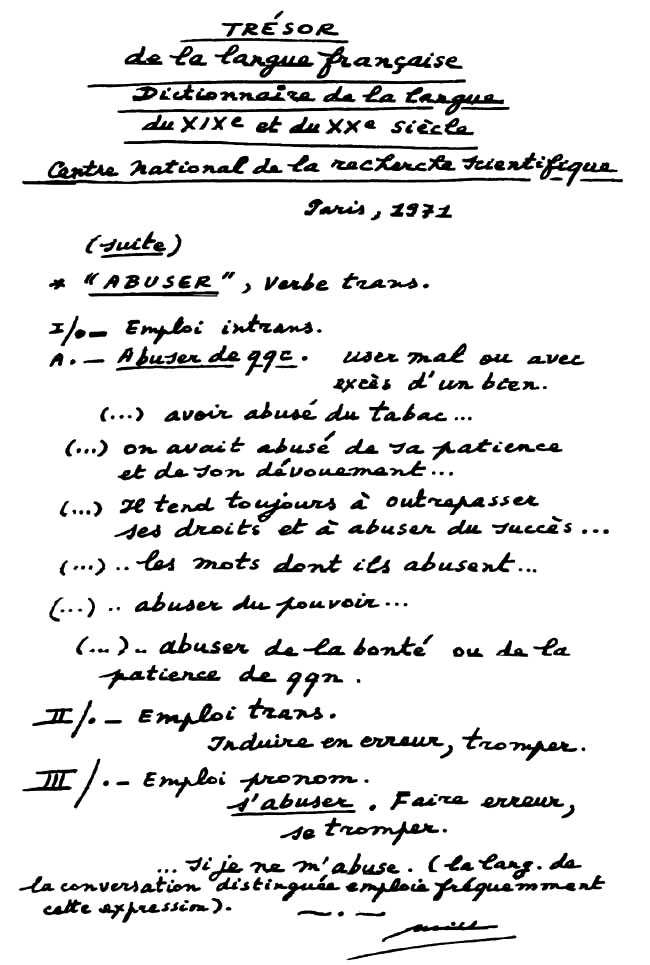 TRÉSOR
de la langue française
Dictionnaire de la langue
du XIXe et du XXe siècle
Centre national de la recherche scientifique
Paris, 1971
(suite)
* "ABUSER", verbe trans.
I/.— Emploi intrans.
A.— Abuser de qqc. user mal ou avec
excès d'un bien.
(...) avoir abusé du tabac...
(...) on avait abusé de sa patience
et de son dévouement...
(...) Il tend toujours à outrepasser
ses droits et à abuser du succès...
(...).. les mots dont ils abusent...
(...).. abuser du pouvoir...
(...).. abuser de la bonté ou de la
patience de qqn.
II/.— Emploi trans.
Induire en erreur, tromper.
III/.— Emploi pronom.
s'abuser. Faire erreur,
se tromper.
... si je ne m'abuse. (la lang. de
la conversation distinguée emploie fréquemment
cette expression). —.—